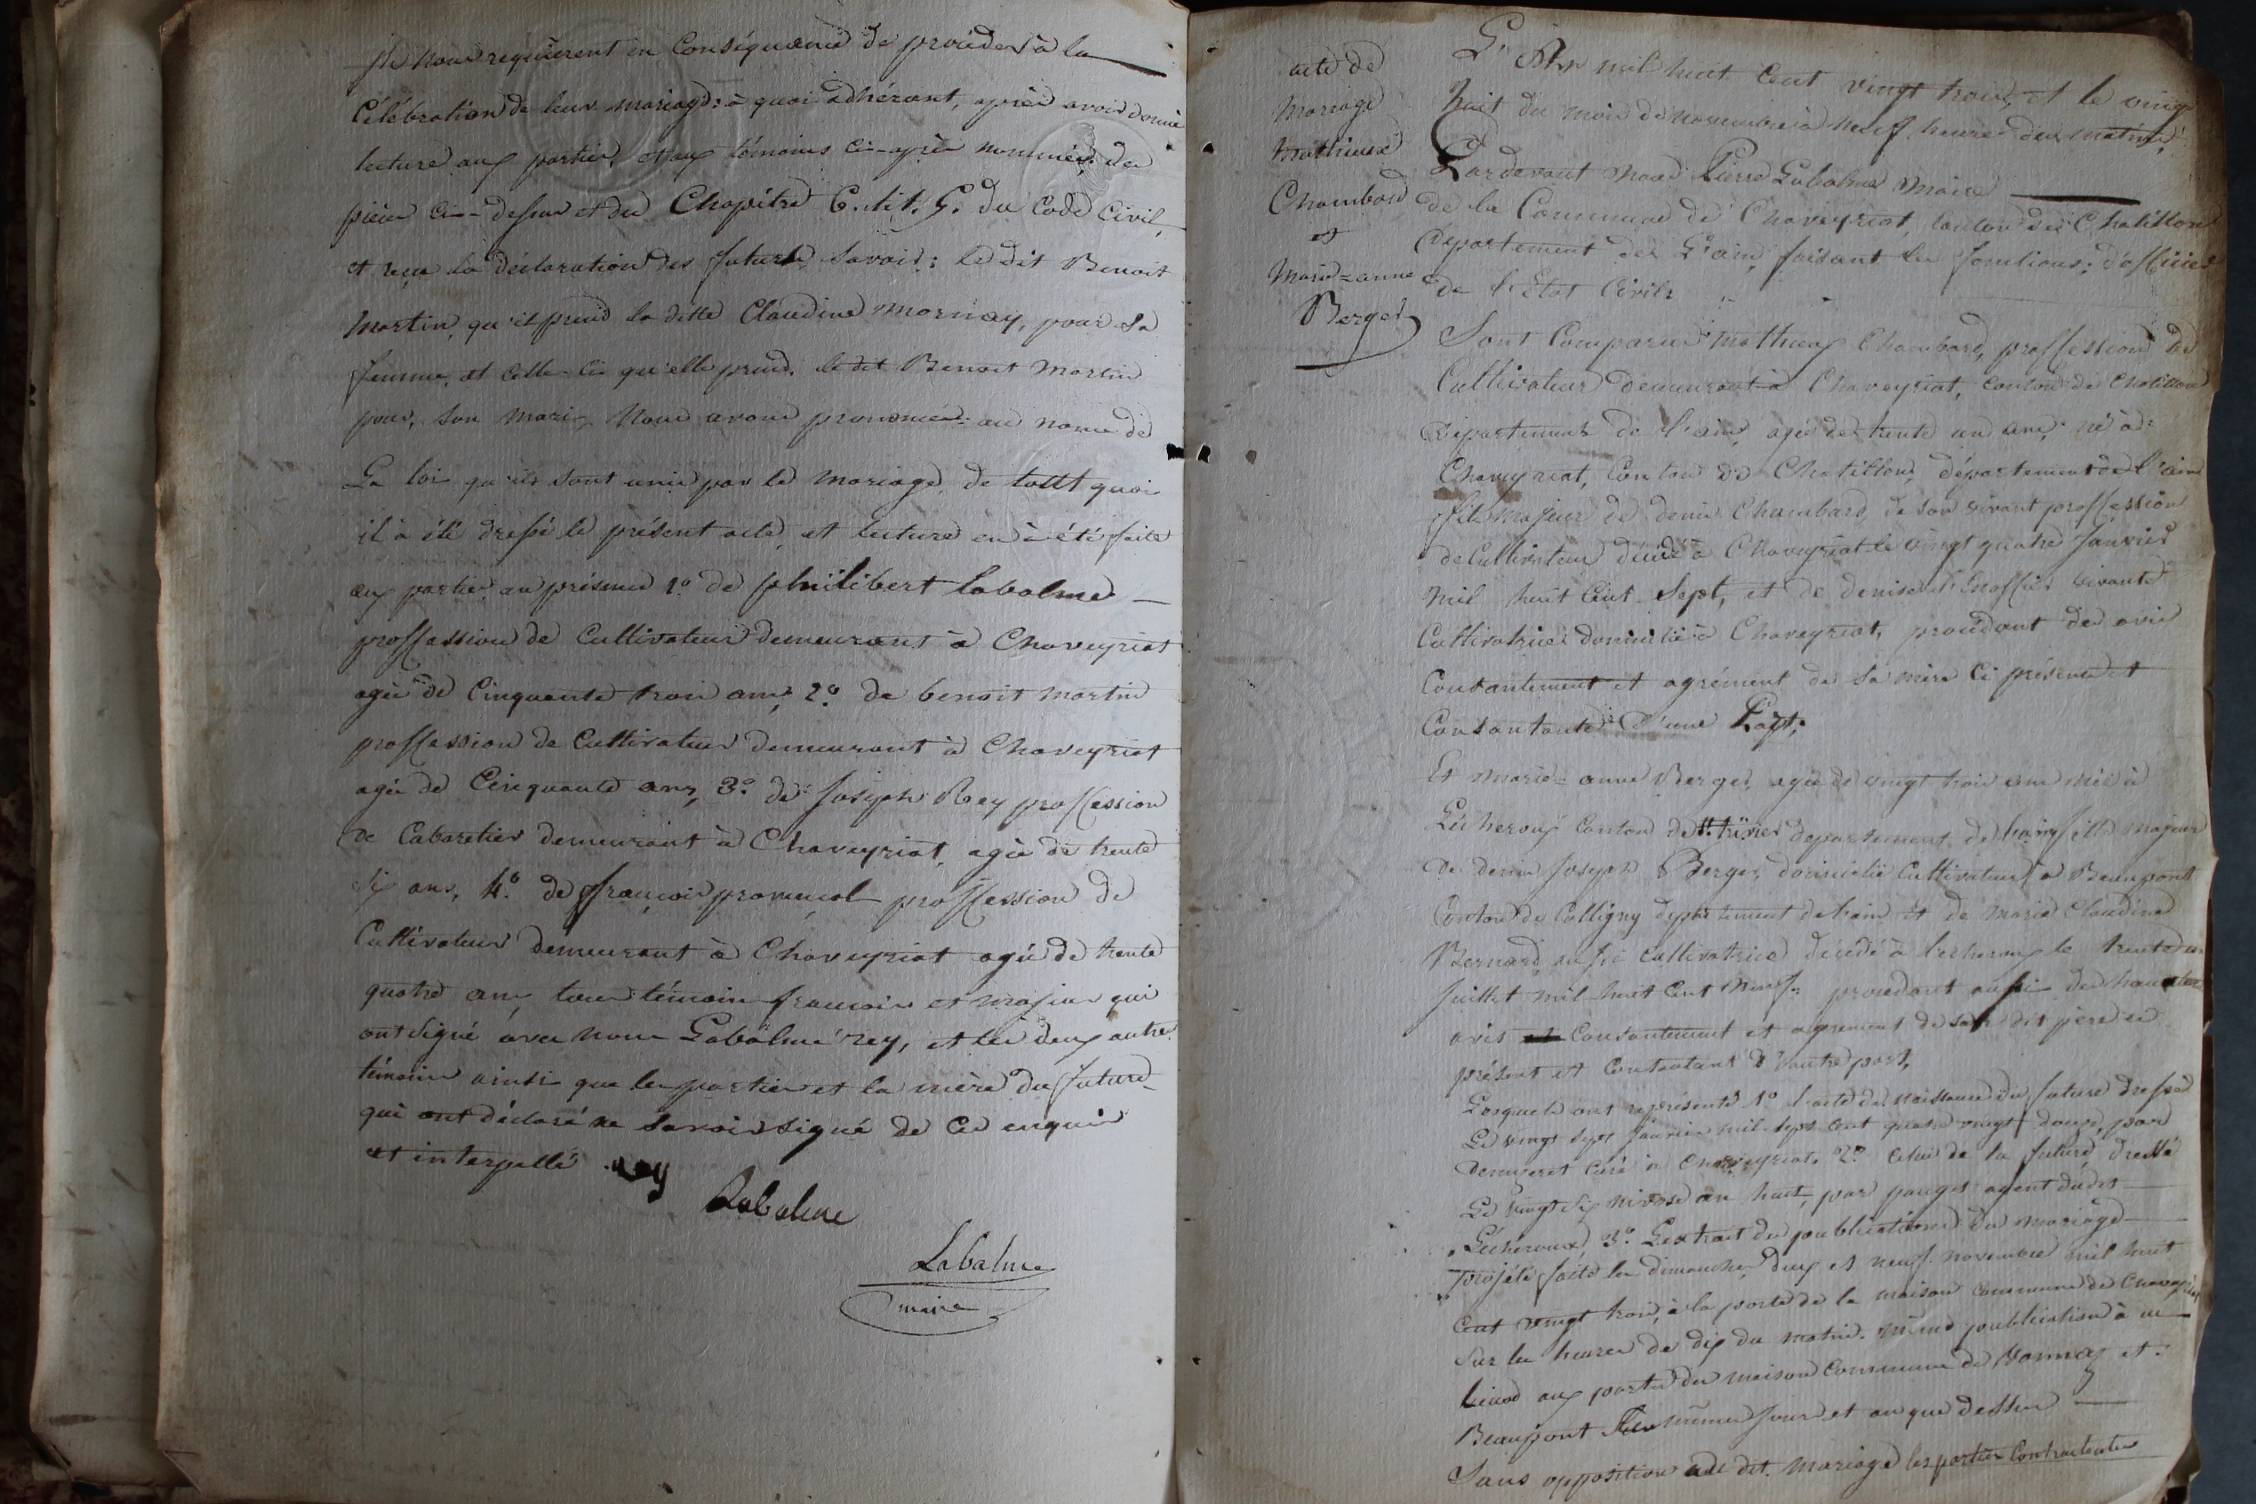 ils nous requièrent en Conséquence de procéder à la
Célébration de leur mariage: à quoi adhérant, après avoir donné
lecture aux parties, et aux témoins ci-après nommés, des
pièces ci-dessus et du Chapitre 6. tit. 5. du Code Civil,
et reçu la déclaration des futurs, Savoir: le dit Benoit
Martin, qu'il prend la ditte Claudine Mornay, pour sa
femme, et celle-ci qu'elle prend le dit Benoit Martin
pour son mari, Nous avons prononcé au nom de
La loi qu'ils sont unis par le mariage, de tout quoi
il a été dressé le présent acte, et lecture en à été faite
aux parties en présence 1.º de philibert labalme
proffession de Cultivateur demeurant à Chaveyriat
agé de Cinquante trois ans, 2.º de benoit martin
proffession de Cultivateur demeurant à Chaveyriat
agé de Cinquante ans, 3.º de Joseph Rey proffession
de Cabaretier demeurant à Chaveyriat, agé de trente
six ans, 4.º de françois provençal proffession de
Cultivateur demeurant à Chaveyriat agé de trente
quatre ans, tous témoins francois et majeur qui
ont signé avec nous Labalme rey, et les deux autre
témoins ainsi que les parties et la mère du future
qui ont déclaré ne savoir signé de ce enquis
et interpellé rey
Labalme
Labalme
maire
acte de
Mariage
Mathieux
Chambard
et
Marie=anne
Berger
L'An mil huit Cent vingt trois, et le vingt
huit du mois de novembre à neuf heures du matin,
Pardevant Nous Pierre Labalme Maire
de la Commune de Chaveyriat, Canton de Chatillon
Département de L'ain, faisant les fonctions d'officier
de l'Etat Civil.
Sont Comparus Mathieux Chambard, proffession de
Cultivateur demeurant à Chaveyriat, Canton de Chatillon
Département de l'ain, agé de trente un ans, né à
Chaveyriat, Canton de Chatillon, département de l'ain
fils majeur de denis Chambard, de son vivant proffession
de Cultivateur décédé à Chaveyriat le vingt quatre Janvier
Mil huit Cent Sept, et de denise vivante
Cultivatrice domiciliée à Chaveyriat, procédant de avis
Consantement et agrément de sa mère ci présente et
Consantante D'une Part;
Et marie=anne Berger, agée de vingt trois ans née à
Lécheroux Canton de St. trivier département de l'ain, fille majeur
de denis Joseph Berger, domicilié Cultivateur à Beaupont
Canton de Colligny département de l'ain et de marie Claudine
Bernard aussi cultivatrice décédé à lecheroux le trente un
Juillet mil huit Cent neuf, procédant aussi de
avis Consantement et agrément de son dit père ci
présent et Consantant D'autre part,
Lesquels ont représenté 1º l'acte de naissance du future dressé
Le vingt sept Janvier mil sept cent quatre vingt douze, par
curé à Chaveyriat, 2º celui de la future dressé
Le vingt six nivose an huit, par pauget agent dudit
Lécheroux, 3º L'extrait des publications du mariage
projété faite les dimanches, deux et neuf novembre mil huit
Cent vingt trois, à la porte de la maison commune de Chaveyriat
sur les heures de dix du matin. même publication à eu
lieux aux portes des maison Commune de et
Beaupont les mêmes Jour et an que dessus
Sans opposition au dit mariage les parties Contractantes